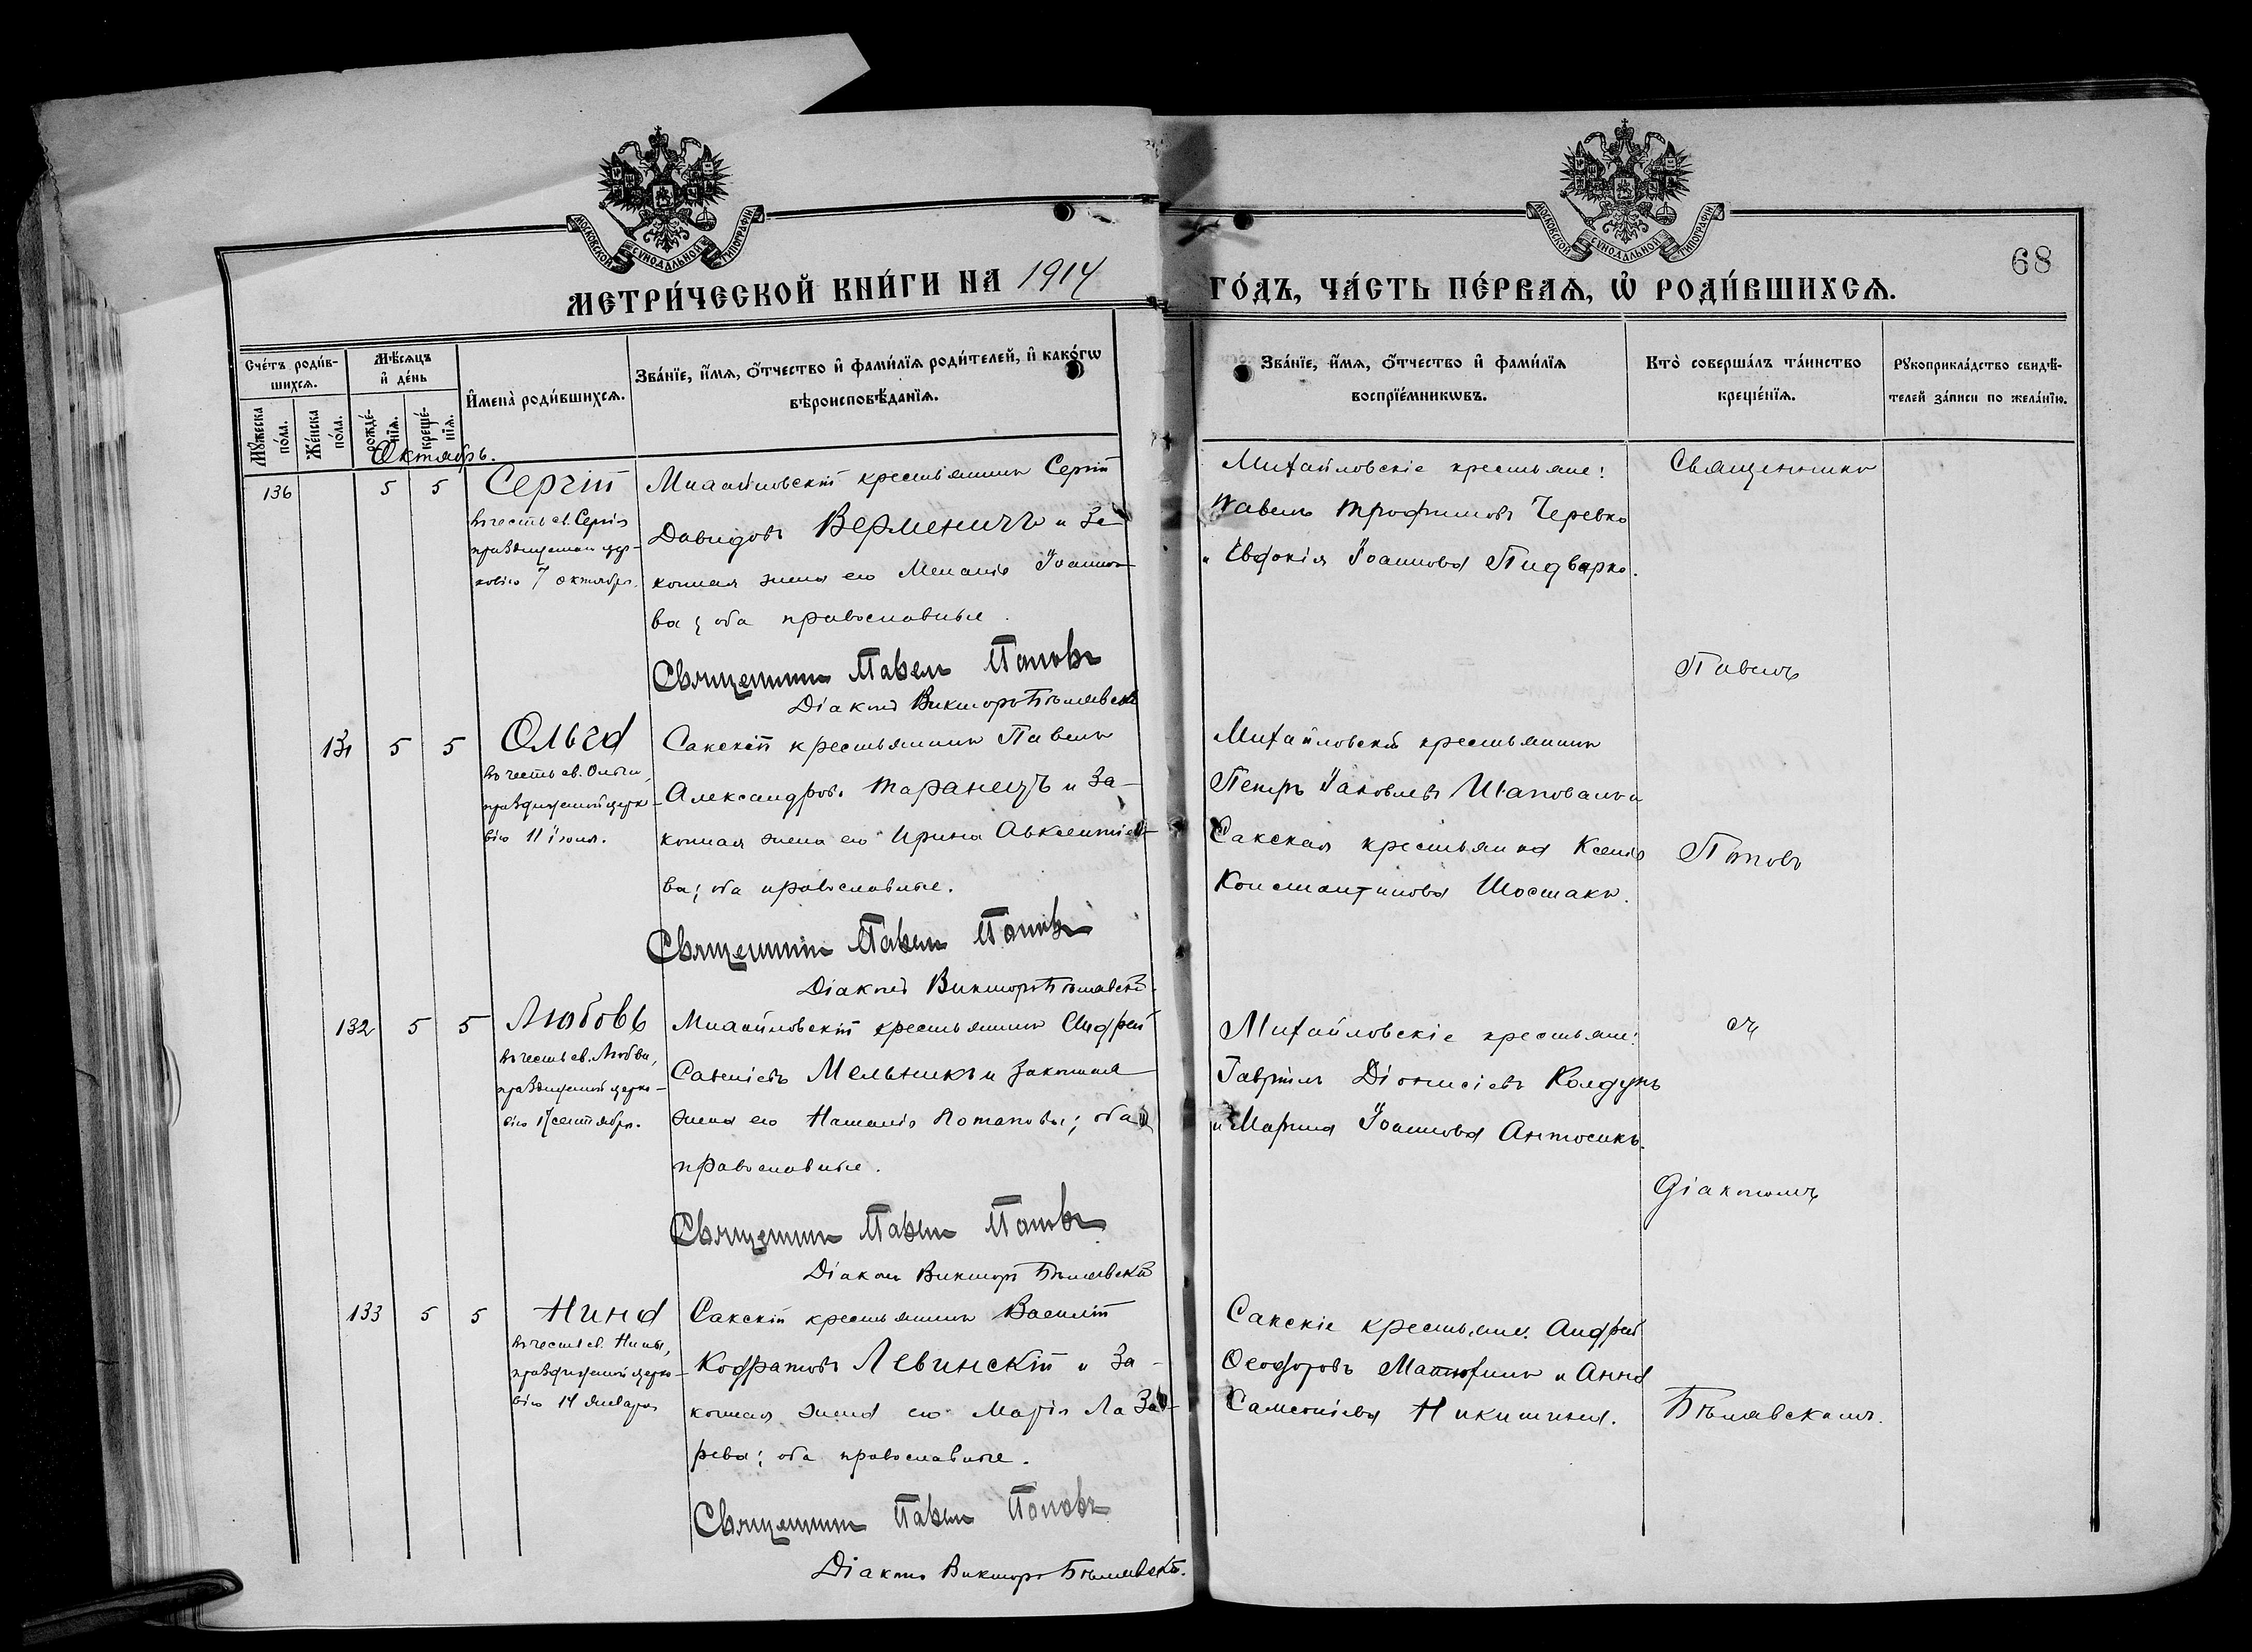 МОСКОВСКОЙ СѴНОДАЛЬНОЙ ТИПОГРАФІИ
МОСКОВСКОЙ СѴНОДАЛЬНОЙ ТИПОГРАФІИ
68
МЕТРИ́ЧЕСКОЙ КНИ́ГИ НА 1914 ГО́ДЪ, ЧА́СТЬ ПЕ́РВАѦ, Ѡ҆ РОДИ́ВШИХСѦ.
Сче́тъ роди́в-
шихсѧ.
Мꙋ́жеска по́ла.
Же́нска по́ла.
Мѣ́сѧцъ
и҆ де́нь
рожде́-
нїѧ.
креще́-
нїѧ.
И҆мена̀ роди́вшихсѧ.
Зва́нїе, и҆́мѧ, ѻ҆́тчество и҆ фами́лїѧ роди́телей, и҆ како́гѡ
вѣроисповѣ́данїѧ.
Зва́нїе, и҆́мѧ, ѻ҆́тчество и҆ фами́лїѧ
воспрїе́мникѡвъ.
Кто̀ соверша́лъ та́инство
креще́нїѧ.
Рꙋкоприкла́дство свидѣ́-
телей за́писи по жела́нїю.
Октябрь.
136 5 5
Сергій
въ честь св. Сергія
празднуемаго цер-
ковію 7 октября.
Михайловскій крестьянинъ Сергій
Давидовъ Верменичъ и за-
конная жена его Меланія Іоанно-
ва; оба православные.
Священникъ Павелъ Поповъ
Діаконъ Викторъ Бѣлявскій
Михайловскіе крестьяне:
Павелъ Трофимовъ Черевко
и Евдокія Іоаннова Пидварко.
Священникъ
Павелъ
131 5 5
Ольга
въ честь св. Ольги,
празднуемой церко-
вію 11 іюля.
Сакскій крестьянинъ Павелъ
Александровъ Таранецъ и за-
конная жена его Ирина Авксентіе-
ва; оба православные.
Священникъ Павелъ Поповъ
Діаконъ Викторъ Бѣлявскій.
Михайловскій крестьянинъ
Петръ Іаковлевъ Шаповалъ и
Сакская крестьянка Ксенія
Константинова Шостакъ.
Поповъ
132 5 5
Любовь
въ честь св. Любви,
празднуемой церко-
вію 17 сентября.
Михайловскій крестьянинъ Андрей
Мельникъ и законная
жена его Наталія Потапова; оба
православные.
Священникъ Павелъ Поповъ
Діаконъ Викторъ Бѣлявскій
Михайловскіе крестьяне:
Гавріилъ Діонисіевъ Колдунъ
и Марина Іоаннова Антосикъ.
съ
Діакономъ
133 5 5
Нина
въ честь св. Нины,
празднуемой церко-
вію 14 января
Сакскій крестьянинъ Василій
Кодратовъ Левинскій и за-
конная жена его Марія Лаза-
рева; оба православные.
Священникъ Павелъ Поповъ
Діаконъ Викторъ Бѣлявскій.
Сакскіе крестьяне: Андрей
Ѳеодоровъ Матюхинъ и Анна
Самсоніева Никитина.
Бѣлявскимъ.